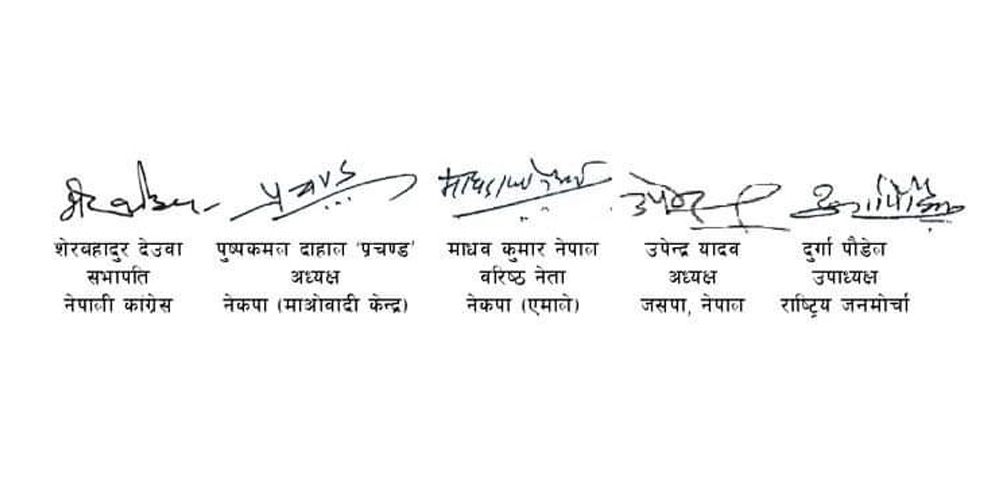 शेरबहादुर देउवा
सभापति
नेपाली कांग्रेस
प्रचण्ड
पुष्पकमल दाहाल ‘प्रचण्ड’
अध्यक्ष
नेकपा (माओवादी केन्द्र)
माधव कुमार नेपाल
वरिष्ठ नेता
नेकपा (एमाले)
उपेन्द्र यादव
अध्यक्ष
जसपा, नेपाल
दुर्गा पौडेल
उपाध्यक्ष
राष्ट्रिय जनमोर्चा